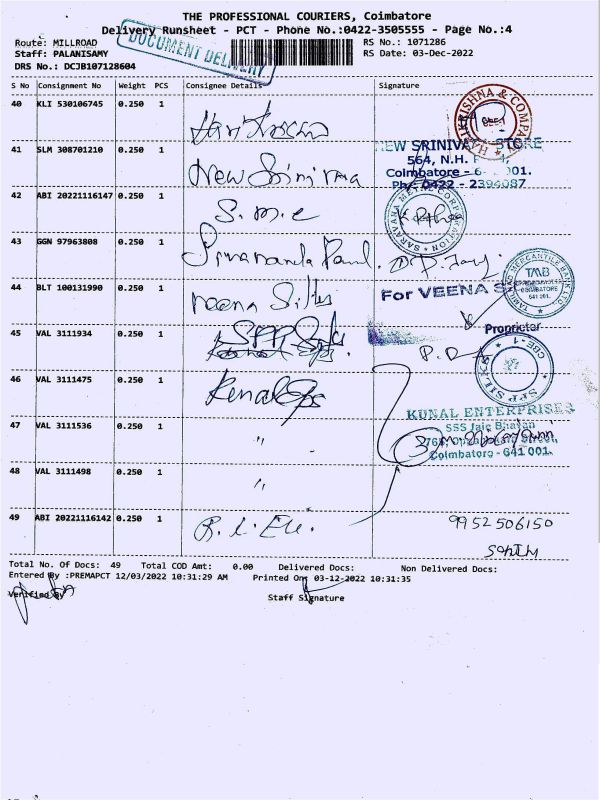 THE PROFESSIONAL COURIERS, Coimbatore
Delivery Runsheet - PCT - Phone No.:0422-3505555 - Page No.:4
Route: MILLROAD
Staff: PALANISAMY
DRS No.: DCJB107128604
DOCUMENT DELIVERY
RS No.: 1071286
RS Date: 03-Dec-2022
S No Consignment No Weight PCS Consignee Details Signature
40 KLI 530106745 0.250 1
HARIKRISHNA & COMPANY
41 SLM 308701210 0.250 1 New Srinivasa
NEW SRINIVASA STORE
564, N.H.
Coimbatore - 001.
Ph: 0422 - 2394087
42 ABI 20221116147 0.250 1 S.M.C
SARAVANA METAL CORPORATION
43 GGN 97963808 0.250 1
44 BLT 100131990 0.250 1 Veena Silks
For VEENA
TAMILNAD MERCANTILE BANK LTD
TMB
COIMBATORE
641 001.
Proprietor
45 VAL 3111934 0.250 1 SPP Silks
SPP SILKS
CBE-1
46 VAL 3111475 0.250 1 Kunal Eps
KUNAL ENTERPRISES
SSS Jaie Bhavan
Street,
Coimbatore - 641 001.
47 VAL 3111536 0.250 1 "
48 VAL 3111498 0.250 1 "
49 ABI 20221116142 0.250 1
9952506150
Total No. Of Docs: 49 Total COD Amt: 0.00 Delivered Docs: Non Delivered Docs:
Entered By :PREMAPCT 12/03/2022 10:31:29 AM Printed On: 03-12-2022 10:31:35
Verified By
Staff Signature